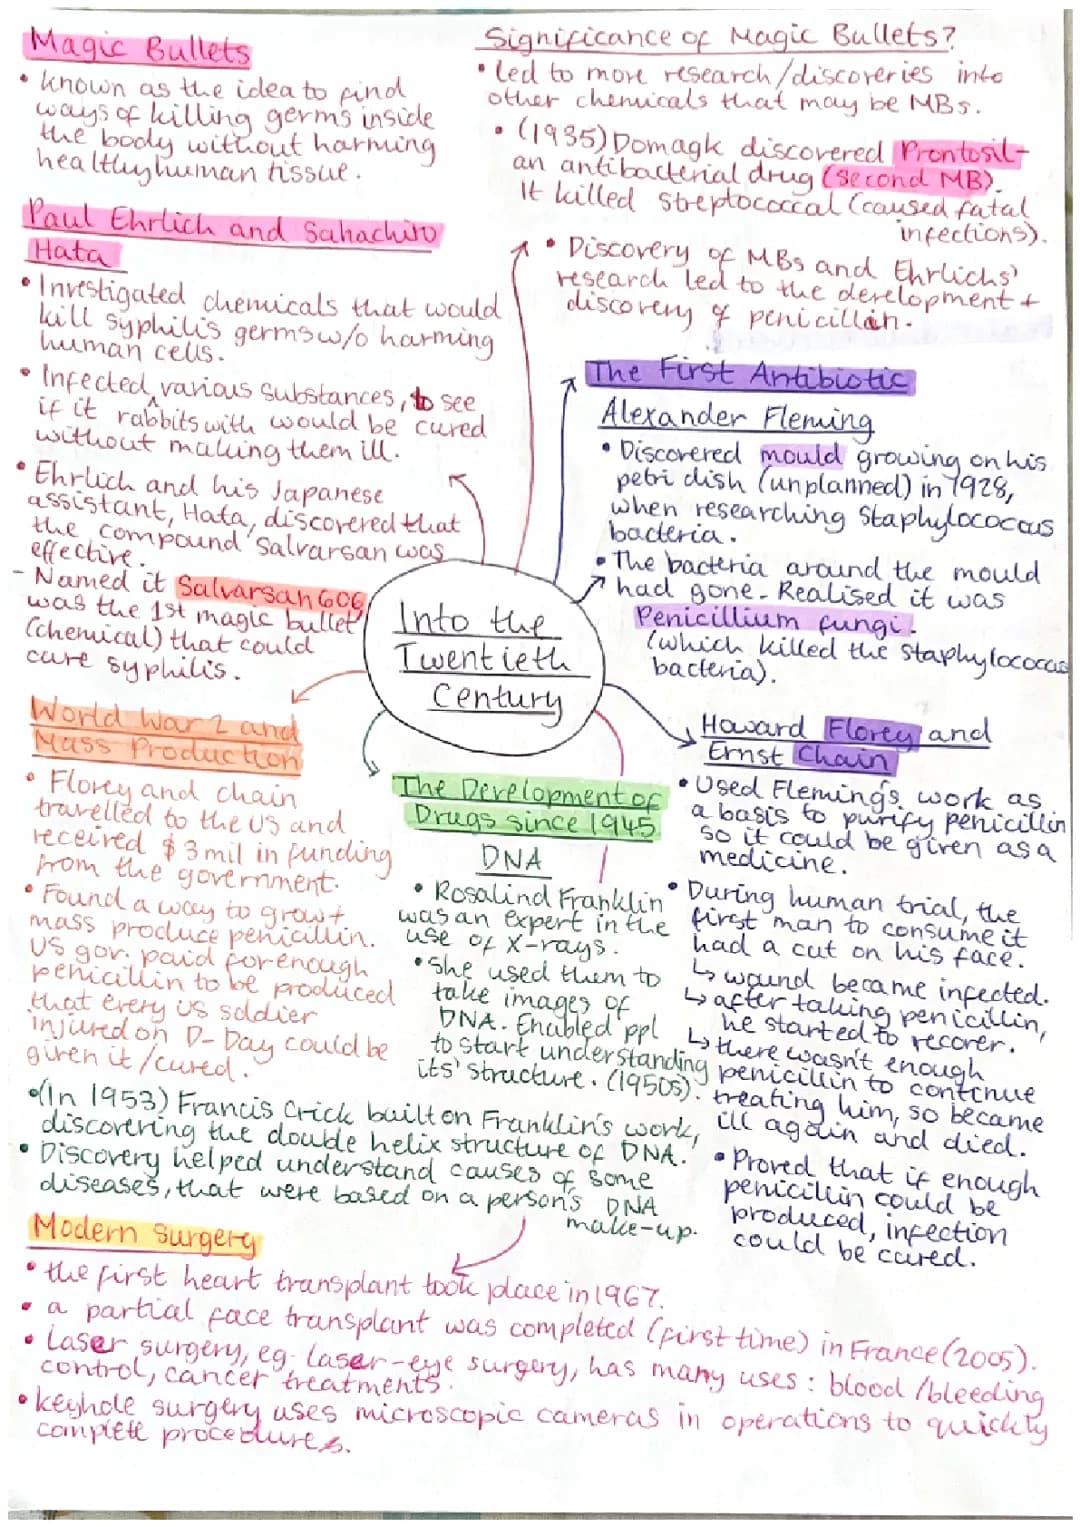 Magic Bullets
• known as the idea to find
ways of killing germs inside
the body without harming
healthy human tissue.
Paul Ehrlich and Sahachiro
Hata
• Investigated chemicals that would
kill syphilis germs w/o harming
human cells.
• Infected ^ various substances, to see
if it rabbits with would be cured
without making them ill.
• Ehrlich and his Japanese
assistant, Hata, discovered that
the compound Salvarsan was
effective.
- Named it Salvarsan 606,
was the 1st magic bullet
(chemical) that could
cure syphilis.
Significance of Magic Bullets?
• led to more research/discoveries into
other chemicals that may be MBs.
• (1935) Domagk discovered Prontosil-
an antibacterial drug (second MB).
It killed streptococcal (caused fatal
infections).
• Discovery of MBs and Ehrlichs'
research led to the development +
discovery of penicillin.
The First Antibiotic
Alexander Fleming
• Discovered mould growing on his
petri dish (unplanned) in 1928,
when researching Staphylococcus
bacteria.
• The bacteria around the mould
had gone. Realised it was
Penicillium fungi.
(which killed the staphylococcus
bacteria).
Into the
Twentieth
Century
World War 2 and
Mass Production
• Florey and chain
travelled to the US and
received $3mil in funding
from the government.
• Found a way to grow +
mass produce penicillin.
US gov. paid for enough
penicillin to be produced
that every US soldier
injured on D-Day could be
given it/cured.
The Development of
Drugs since 1945
DNA
• Rosalind Franklin
was an expert in the
use of X-rays.
• She used them to
take images of
DNA. Enabled ppl
to start understanding
its' structure. (1950s).
• (In 1953) Francis Crick built on Franklin's work,
discovering the double helix structure of DNA.
• Discovery helped understand causes of some
diseases, that were based on a person's DNA
make-up.
Howard Florey and
Ernst Chain
• Used Fleming's work as
a basis to purify penicillin
so it could be given as a
medicine.
• During human trial, the
first man to consume it
had a cut on his face.
↳ wound became infected.
↳ after taking penicillin,
he started to recover.
↳ there wasn't enough
penicillin to continue
treating him, so became
ill again and died.
• Proved that if enough
penicillin could be
produced, infection
could be cured.
Modern Surgery
• the first heart transplant took place in 1967.
• a partial face transplant was completed (first time) in France (2005).
• Laser surgery, eg. laser-eye surgery, has many uses: blood/bleeding
control, cancer treatments.
• keyhole surgery uses microscopic cameras in operations to quickly
complete procedures.